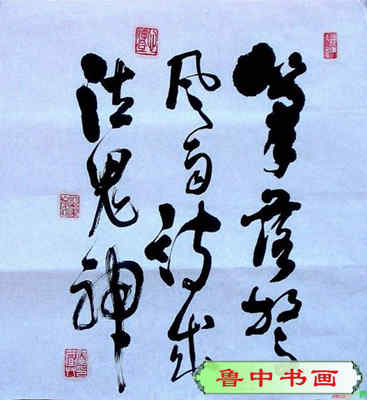 笔落惊
风雨诗成
泣鬼神
鲁中书画